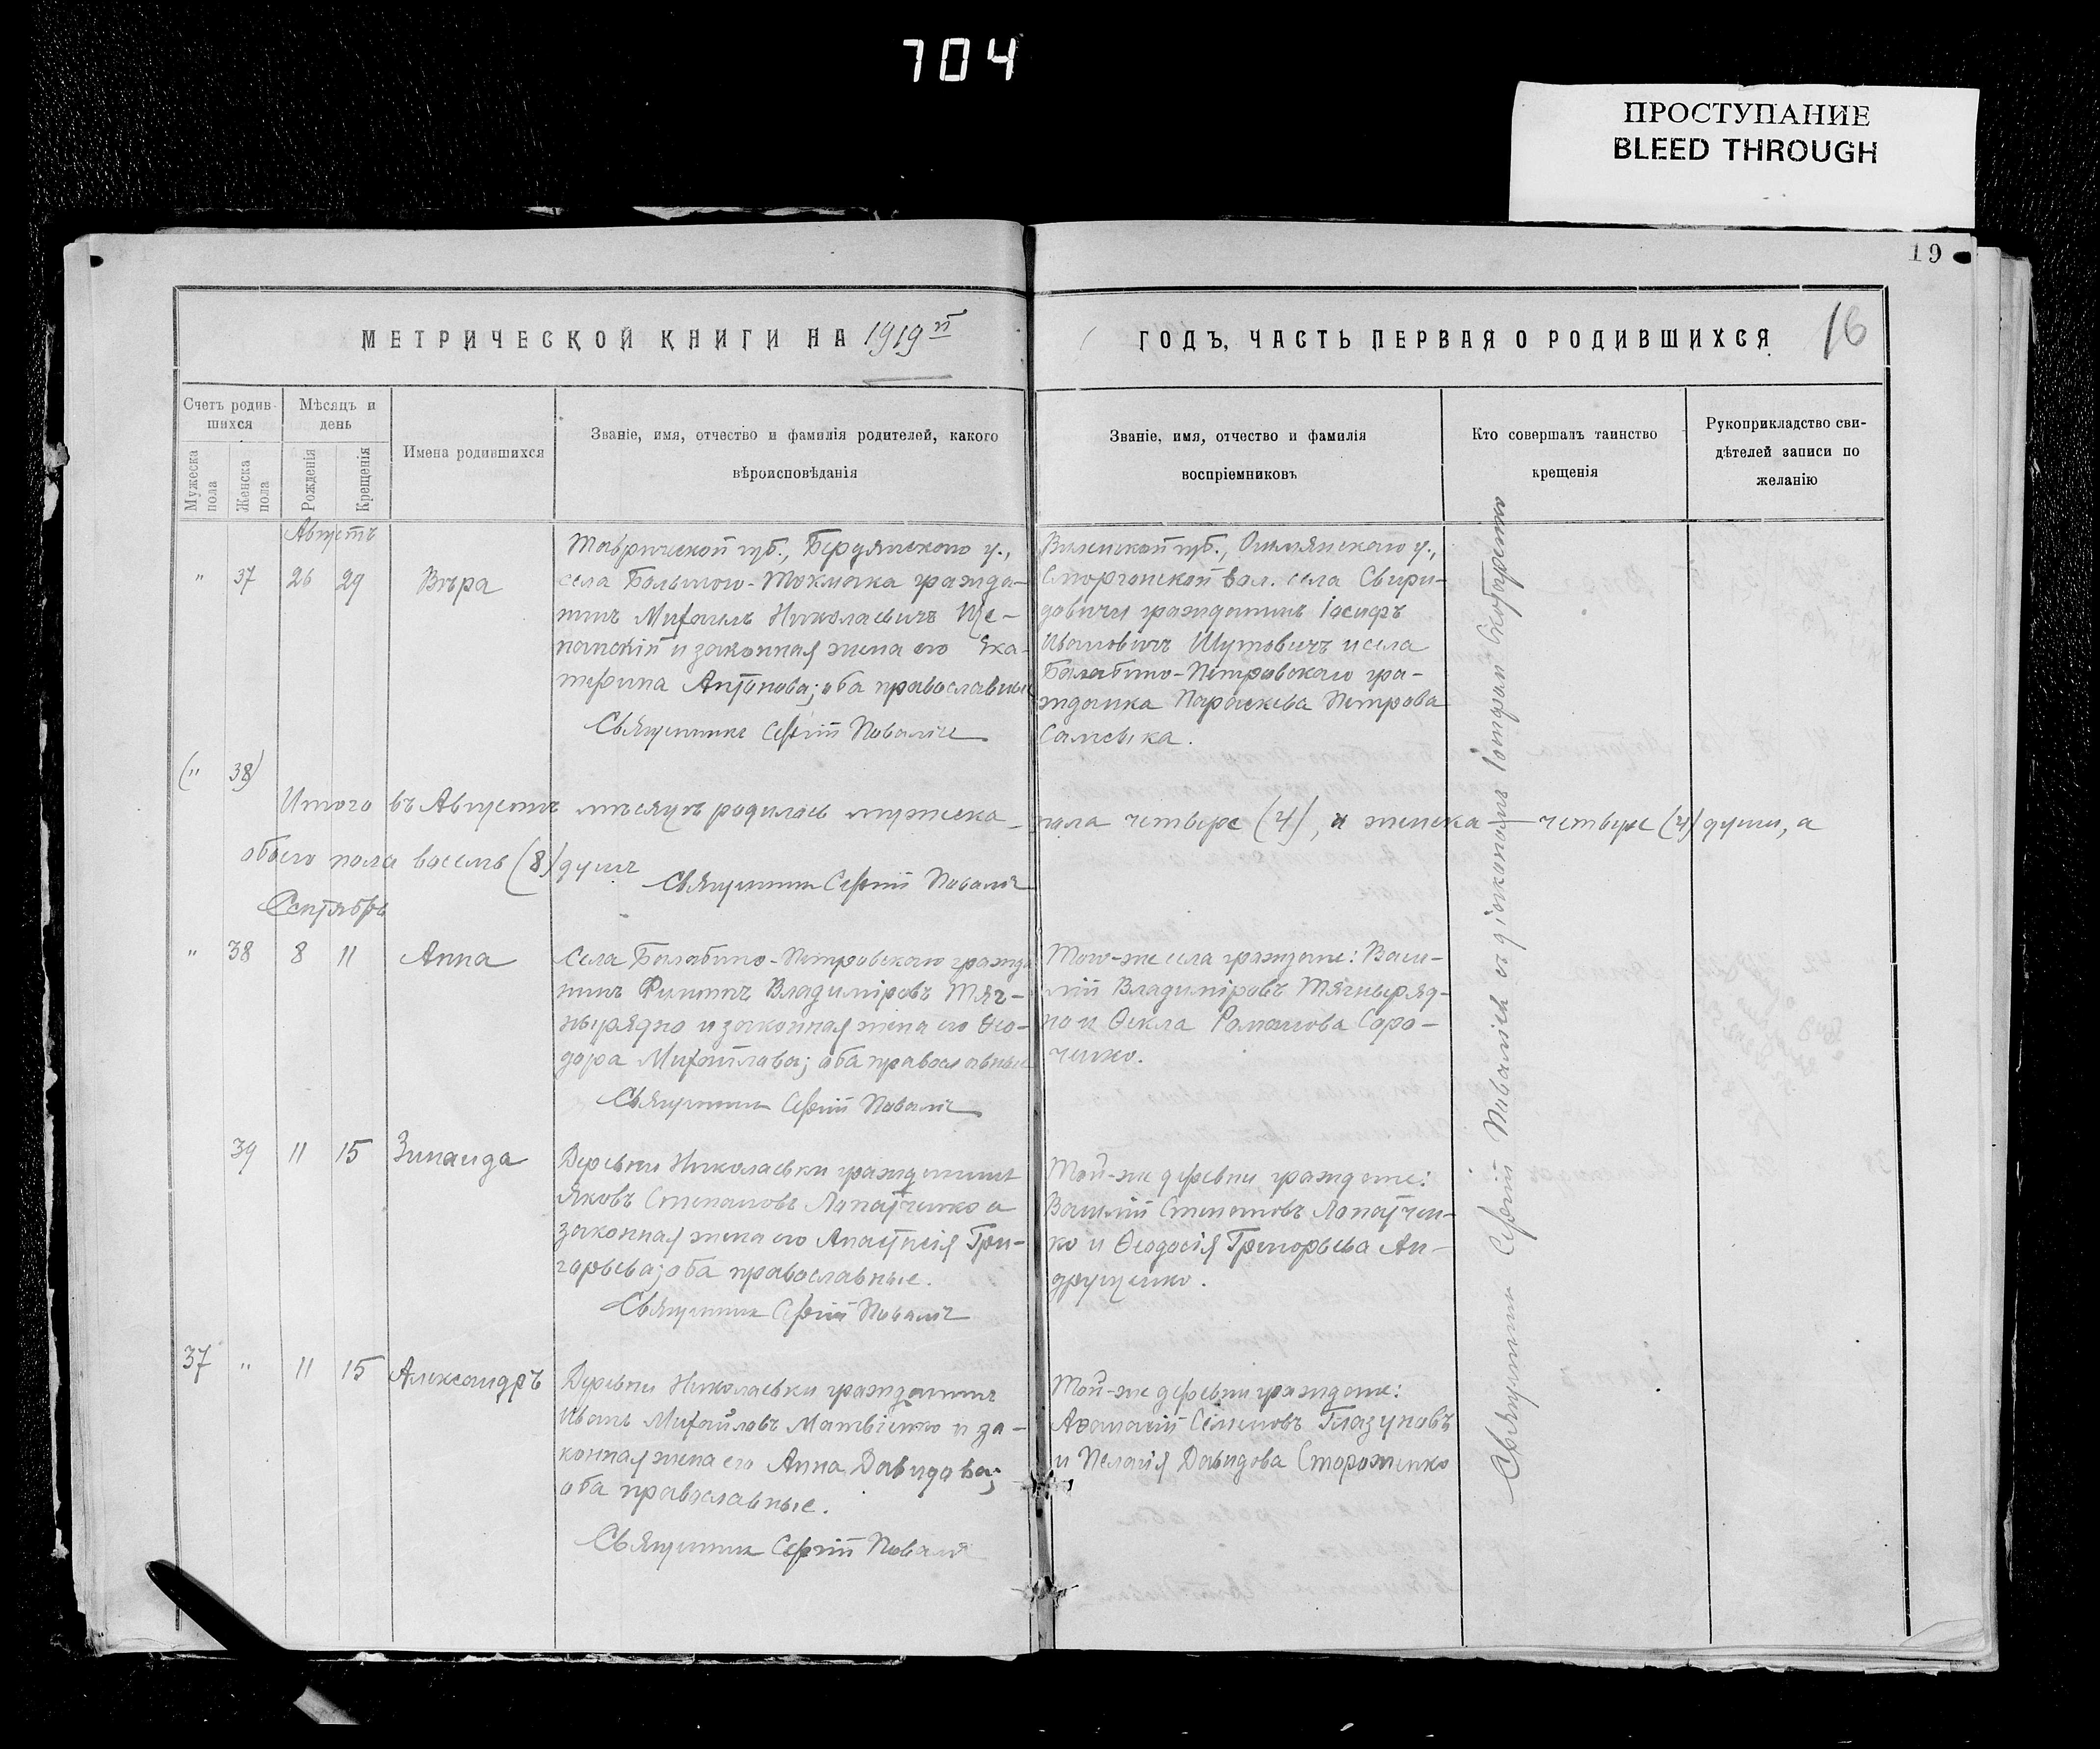 704
ПРОСТУПАНИЕ
BLEED THROUGH
19
МЕТРИЧЕСКОЙ КНИГИ НА 1919й
ГОДЪ, ЧАСТЬ ПЕРВАЯ О РОДИВШИХСЯ
16
Счетъ родив-
шихся
Мѣсяцъ и
день
Мужеска
пола
Женска
пола
Рожденія
Крещенія
Имена родившихся
Званіе, имя, отчество и фамилія родителей, какого
вѣроисповѣданія
Званіе, имя, отчество и фамилія
воспріемниковъ
Кто совершалъ таинство
крещенія
Рукоприкладство сви-
дѣтелей записи по
желанію
Августъ
" 37 26 29 Вѣра
Таврической губ., Бердянскаго у.,
села Большого-Токмака гражда-
нинъ Михаилъ Николаевичъ Ще-
панскій и законная жена его Ека-
терина Антонова; оба православные
Священникъ Сергій Поваліи
Виленской губ., Ошмянскаго у.,
Сморгонской вол. села Свири-
довичи гражданинъ Іосифъ
Ивановичъ Шутовичъ и села
Балабино-Петровскаго гра-
жданка Параскева Петрова
(" 38)
Итого въ Августѣ мѣсяцѣ родилось мужеска пола четверо (4), а женска — четыре (4) души, а
обоего пола восемь (8) душъ
Священникъ Сергій Поваліи
Сентябрь
" 38 8 11 Анна
Села Балабино-Петровскаго гражда
нинъ Филиппъ Владиміровъ Тяг-
нырядно и законная жена его Ѳео-
дора Михайлова; оба православные
Священникъ Сергій Поваліи
Того-же села граждане: Васи-
лій Владиміровъ Тягныряд-
но и Ѳекла Романова Соро-
ченко.
39 11 15 Зинаида
Деревни Николаевки гражданинъ
Яковъ Степановъ Лопатченко и
законная жена его Анастасія Гри-
горьева; оба православные.
Священникъ Сергій Поваліи
Той-же деревни граждане:
Василій Степановъ Лопатчен-
ко и Ѳеодосія Григорьева Ан-
друщенко.
37 " 11 15 Александръ
Деревни Николаевки гражданинъ
Иванъ Михайловъ Матвіенко и за-
конная жена его Анна Давидова;
оба православные.
Священникъ Сергій Поваліи
Той-же деревни граждане:
Аѳанасій Семеновъ Глазуновъ
и Пелагія Давидова Стороженко
Священникъ Сергій Поваліи съ діакономъ Іоанном